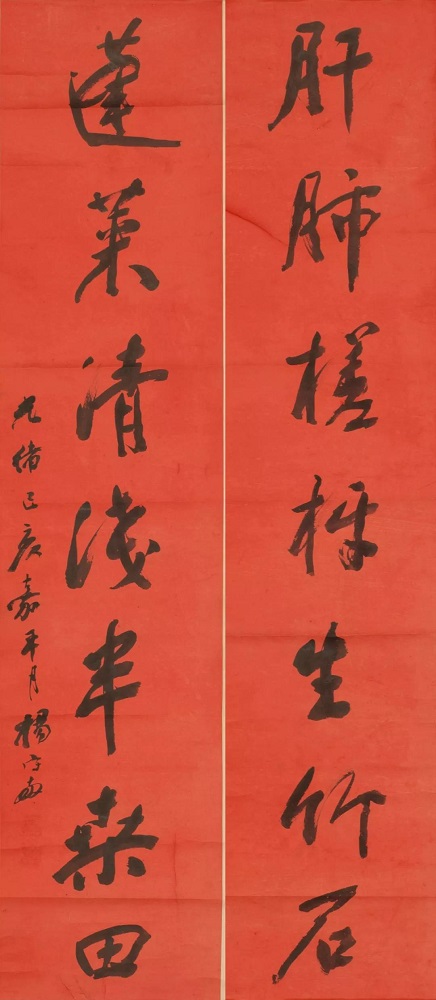 肝肺槎枒生竹石
蓬莱清浅半桑田
光绪己亥嘉平月杨守敬